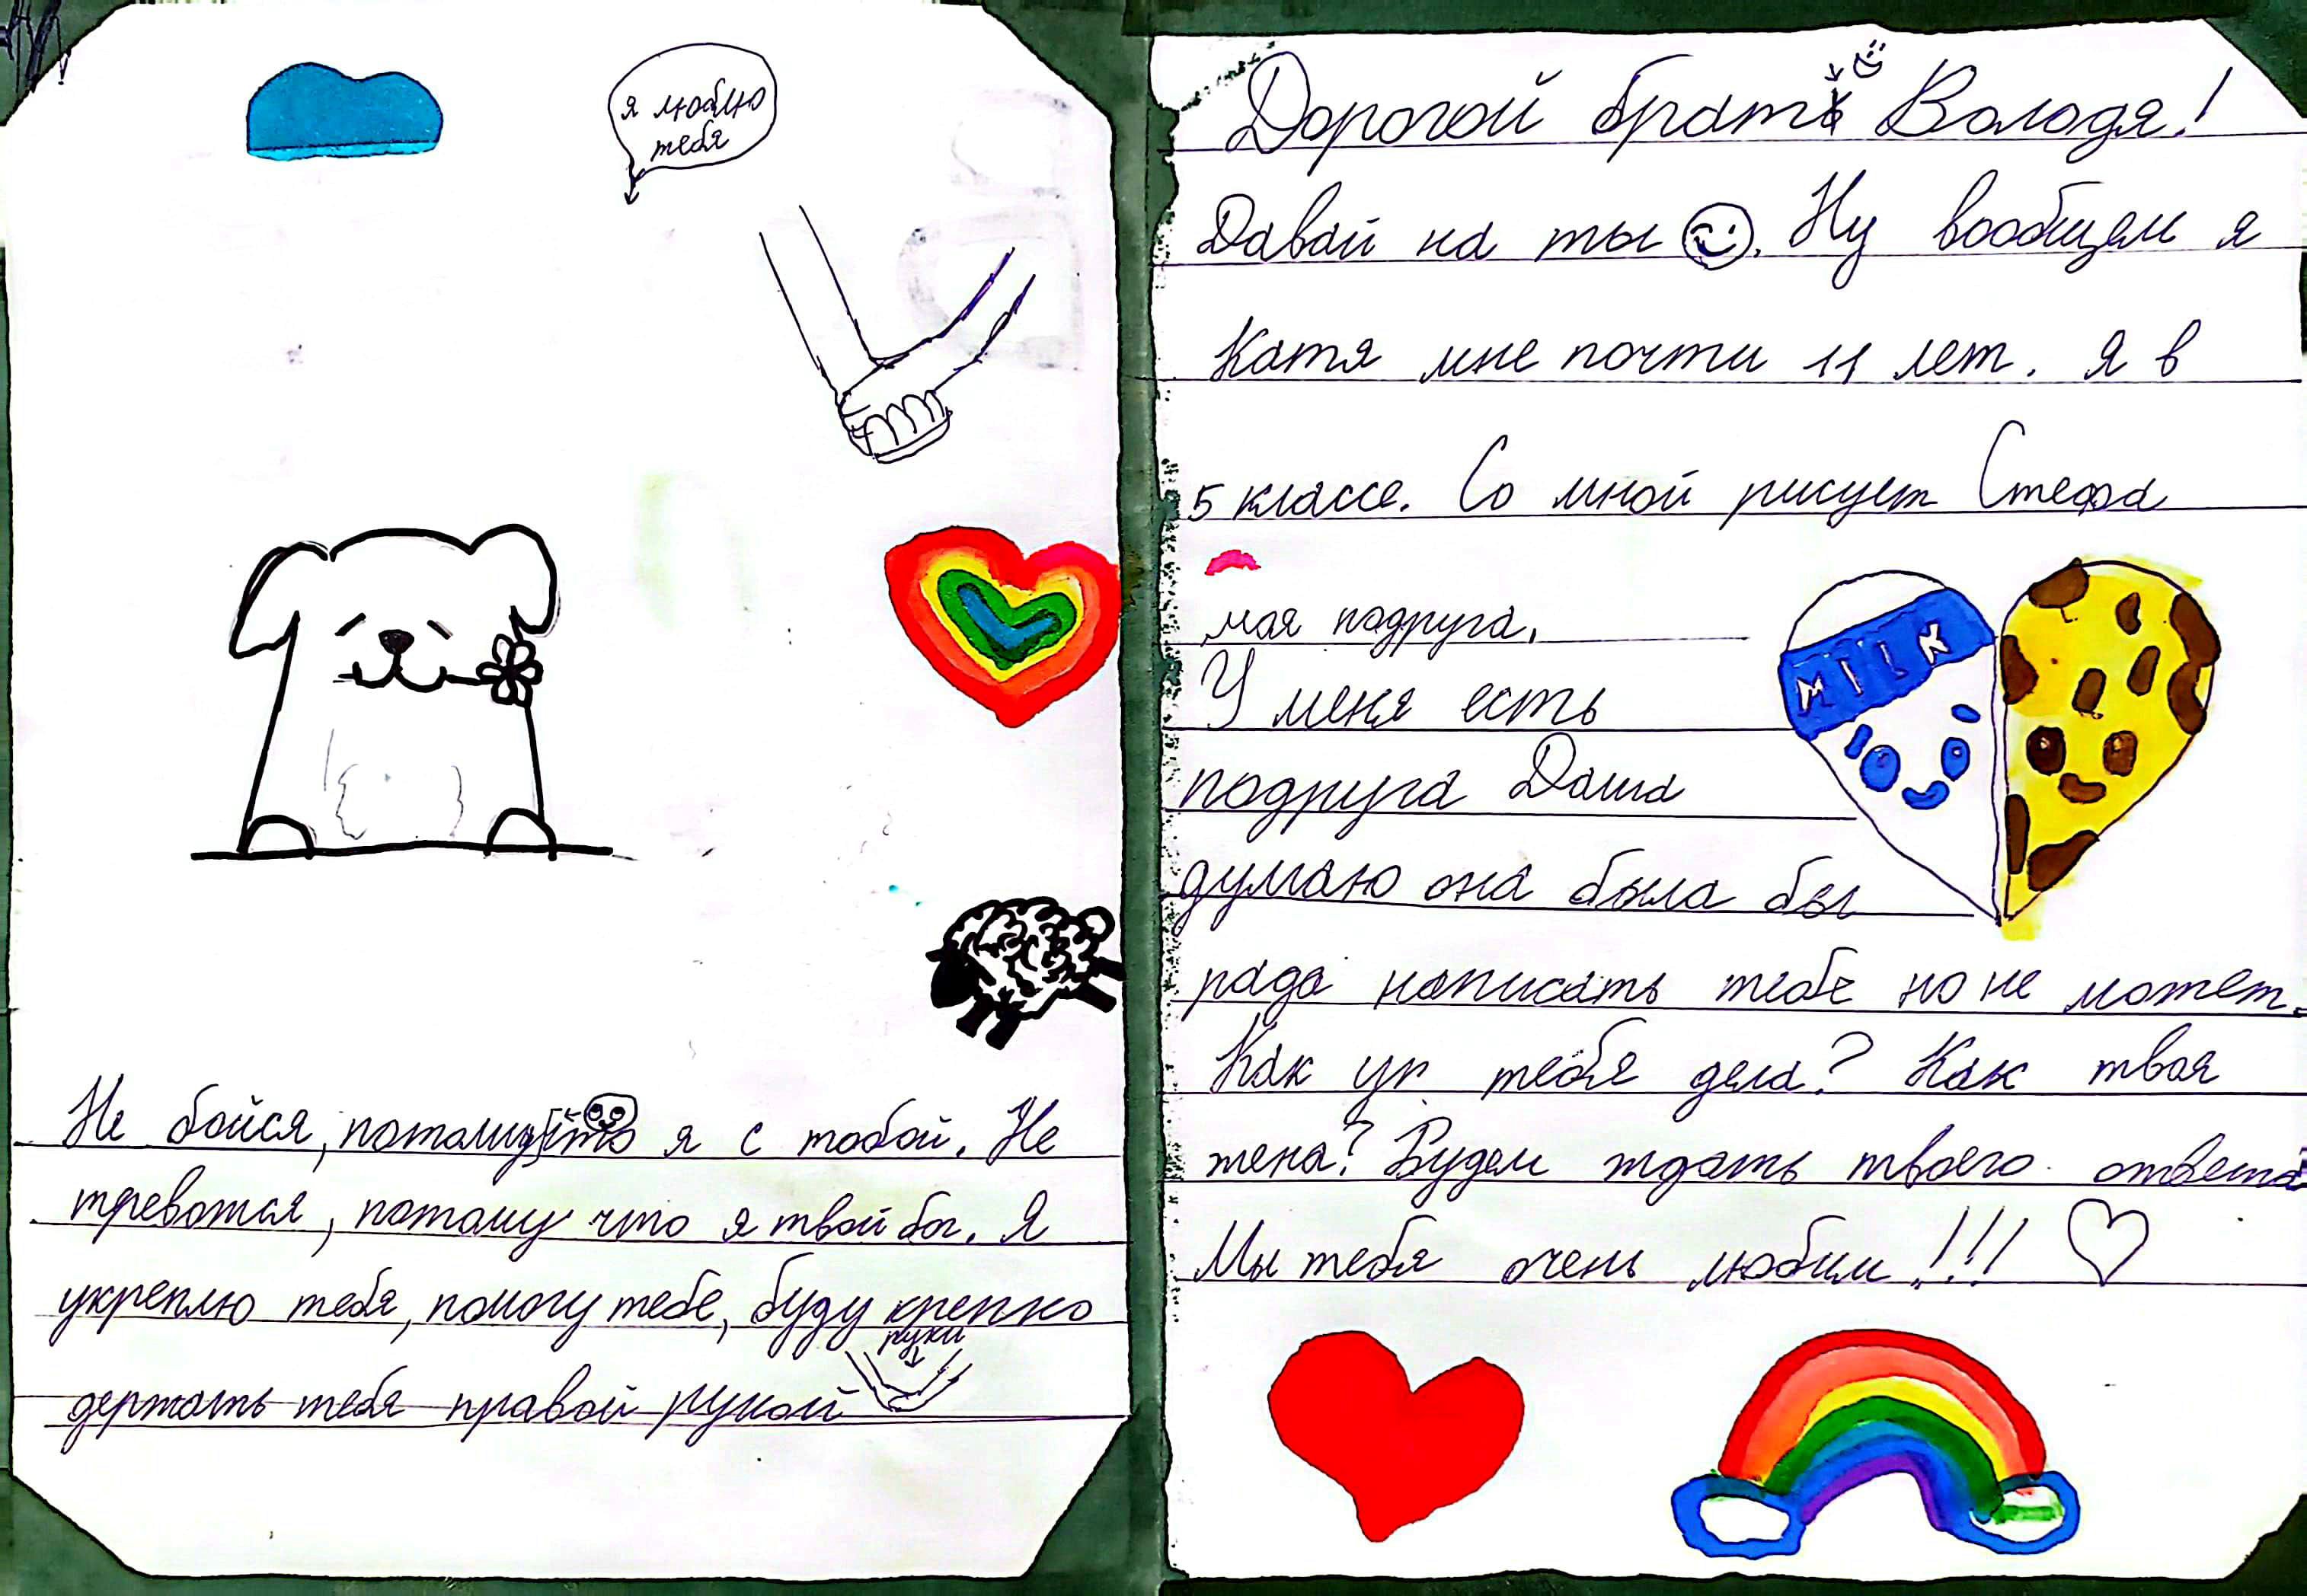 я люблю
тебя
Не бойся, потому что я с тобой. Не
тревожься, потому что я твой бог. Я
укреплю тебя, помогу тебе, буду крепко
руки
держать тебя правой рукой
Дорогой брат Володя!
Давай на ты. Ну вообщем я
Катя мне почти 11 лет. Я в
5 классе. Со мной рисует Стефа
моя подруга.
MILK
У меня есть
подруга Даша
думаю она была бы
рада написать тебе но не может.
Как у тебя дела? Как твоя
жена? Будем ждать твоего ответа
Мы тебя очень любим!!!